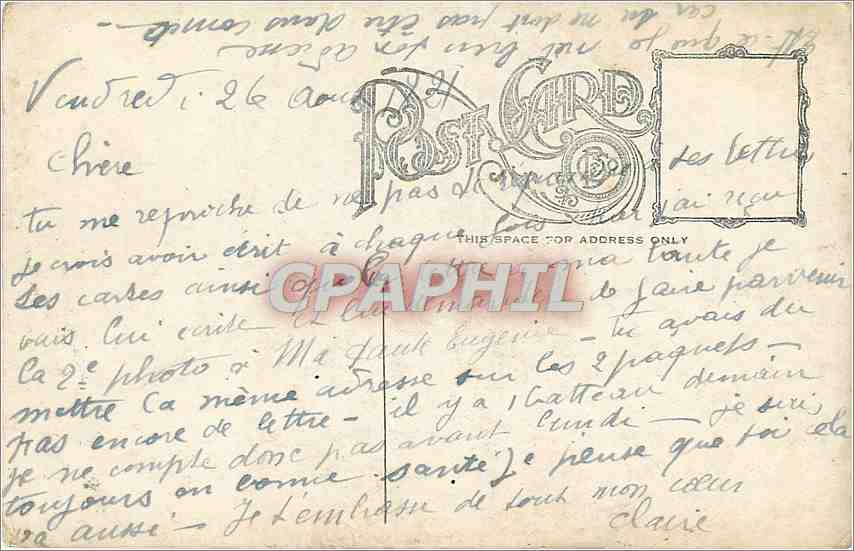 Est-ce que je
car tu ne dois pas être dans
Vendredi 26 Aout 1921
POST CARD
Chère
tu me reproche de ne pas à tes lettres
THIS SPACE FOR ADDRESS ONLY
je crois avoir écrit à chaque fois j'ai reçu
tes cartes ainsi que la lettre ma tante je
CPAPHIL
vais lui écrire et lui de faire parvenir
la 2e photo à Ma tante Eugenie - tu avais du
mettre la même adresse sur les 2 paquets -
pas encore de lettre - il y a 1 batteau demain
je ne compte donc pas avant lundi - je suis
toujours en bonne santé je pense que toi cela
va aussi - Je t'embrasse de tout mon cœur
Claire